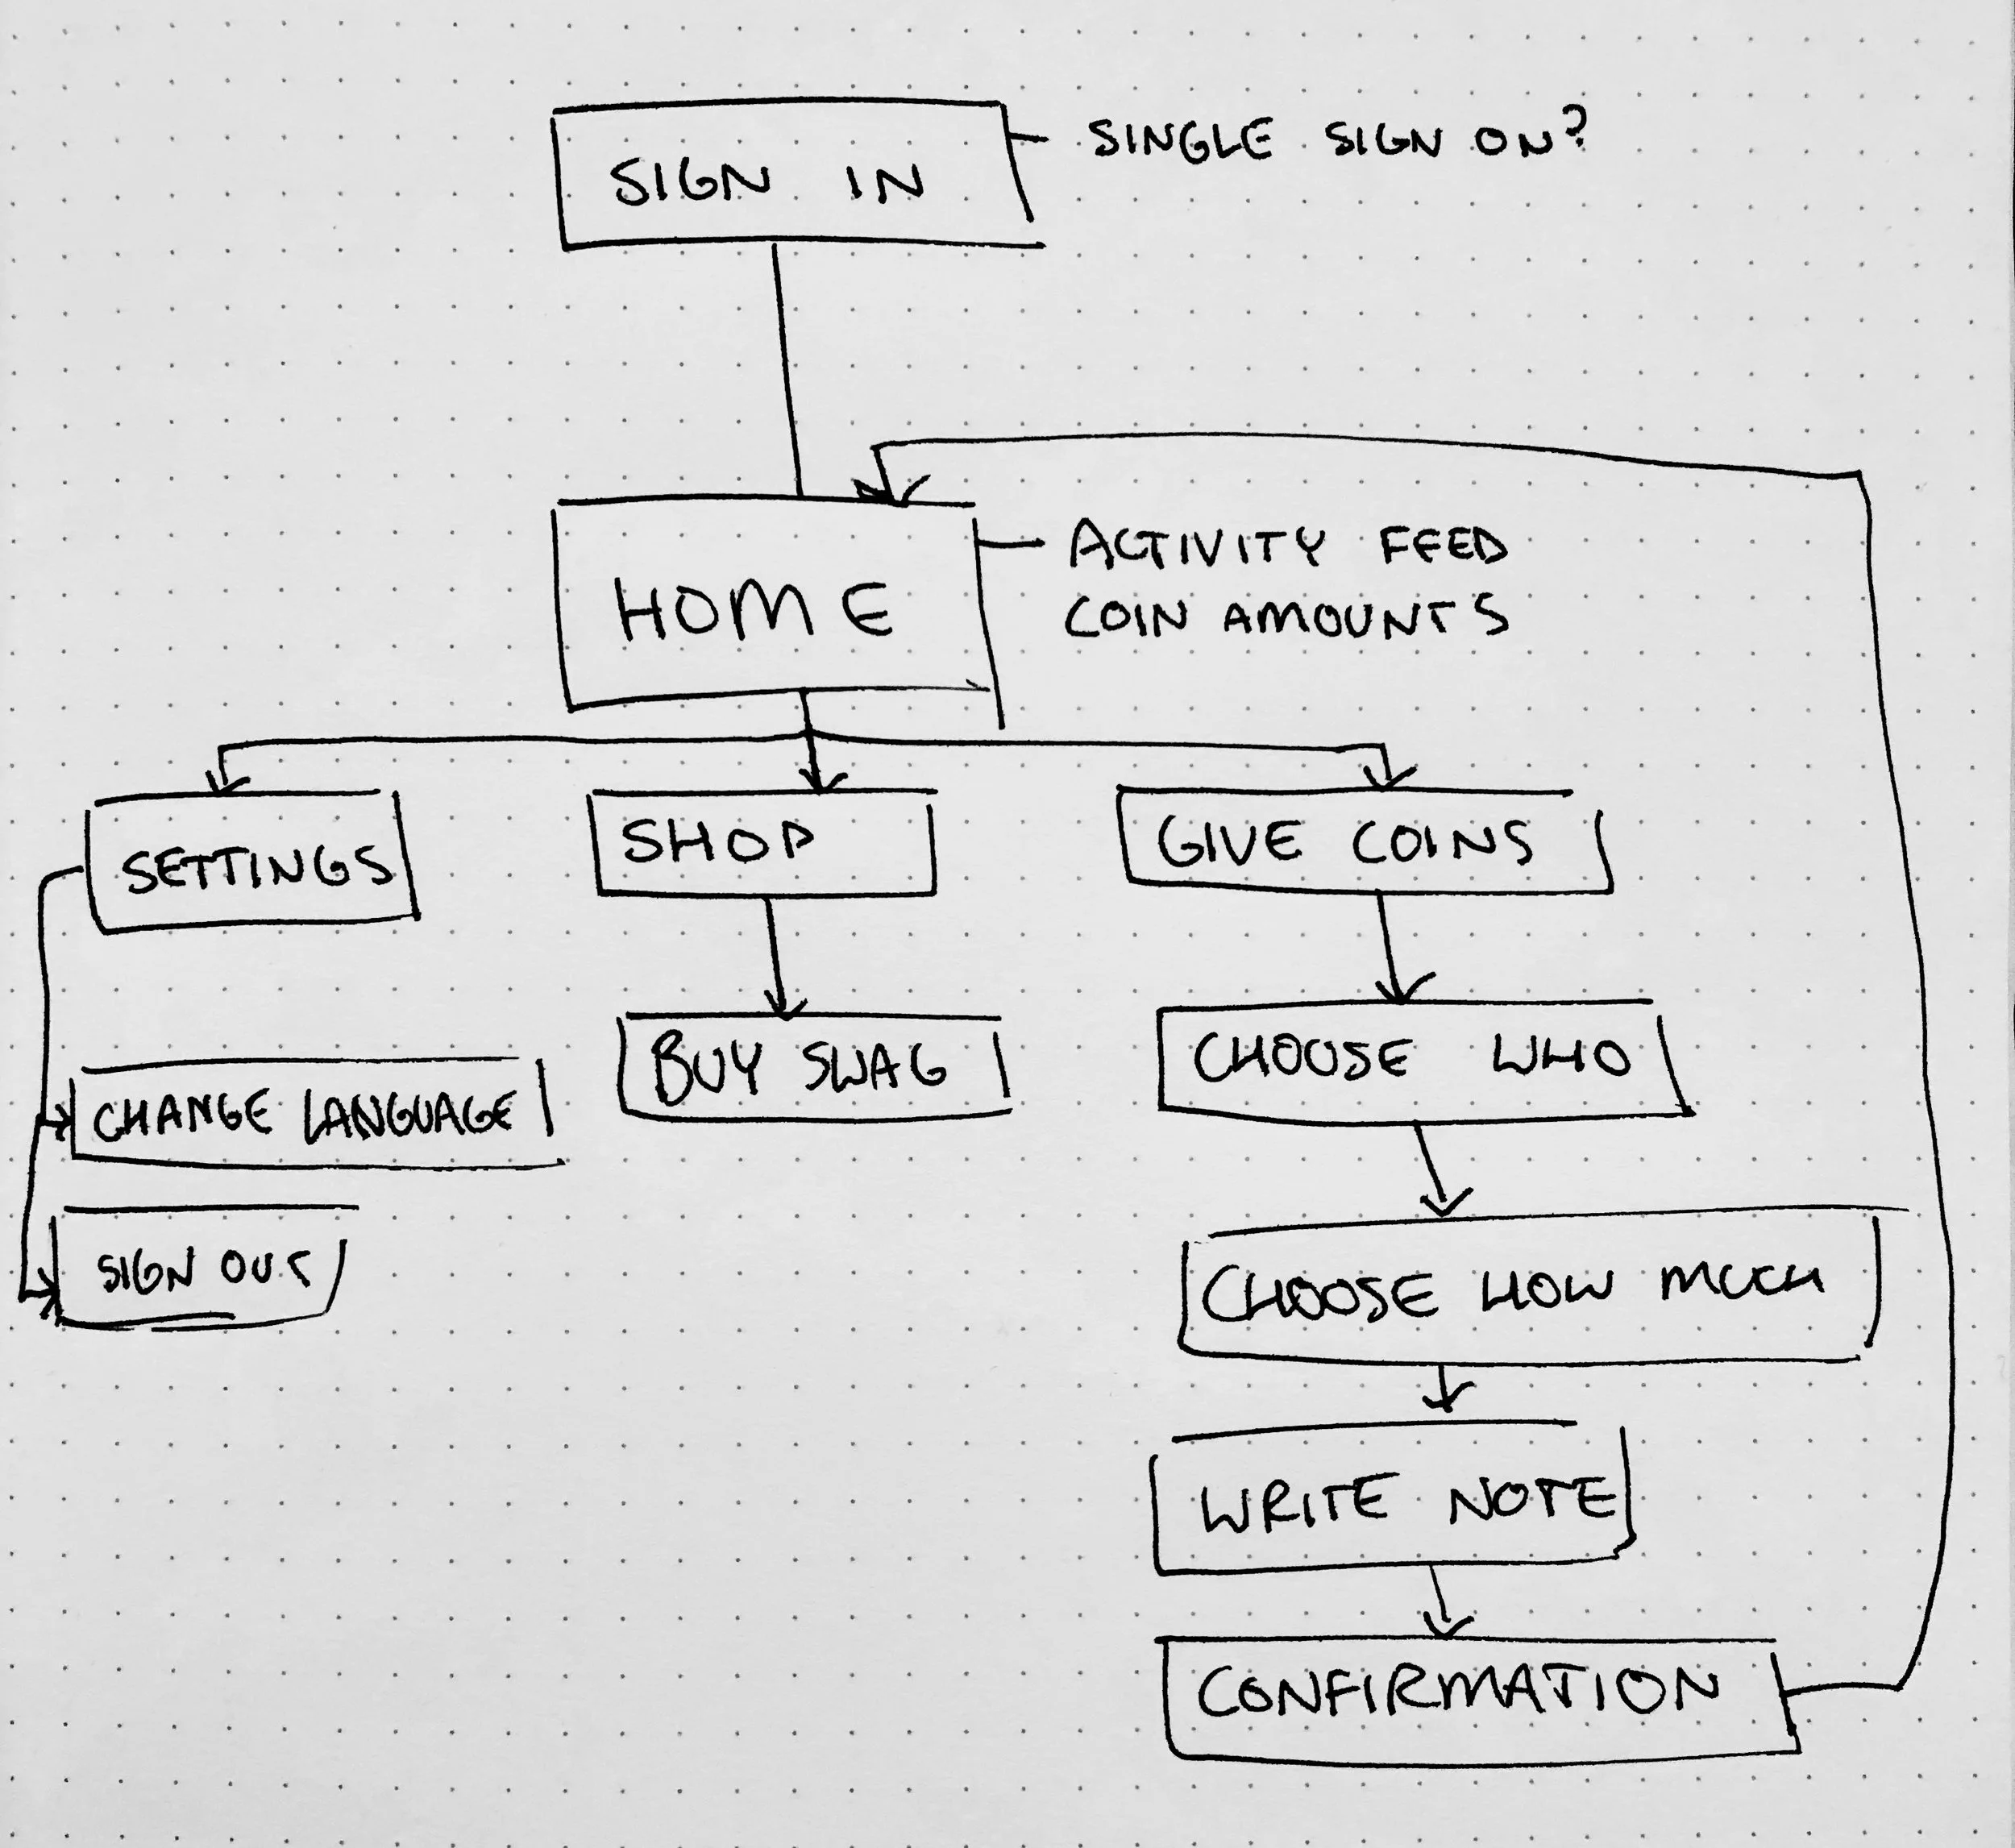 SIGN IN
SINGLE SIGN ON?
HOME
ACTIVITY FEED
COIN AMOUNTS
SETTINGS
SHOP
GIVE COINS
CHANGE LANGUAGE
SIGN OUT
BUY SWAG
CHOOSE WHO
CHOOSE HOW MUCH
WRITE NOTE
CONFIRMATION